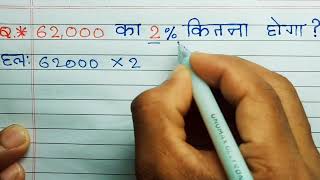 Q.* 62,000 का 2% कितना होगा?
हल: 62000 × 2